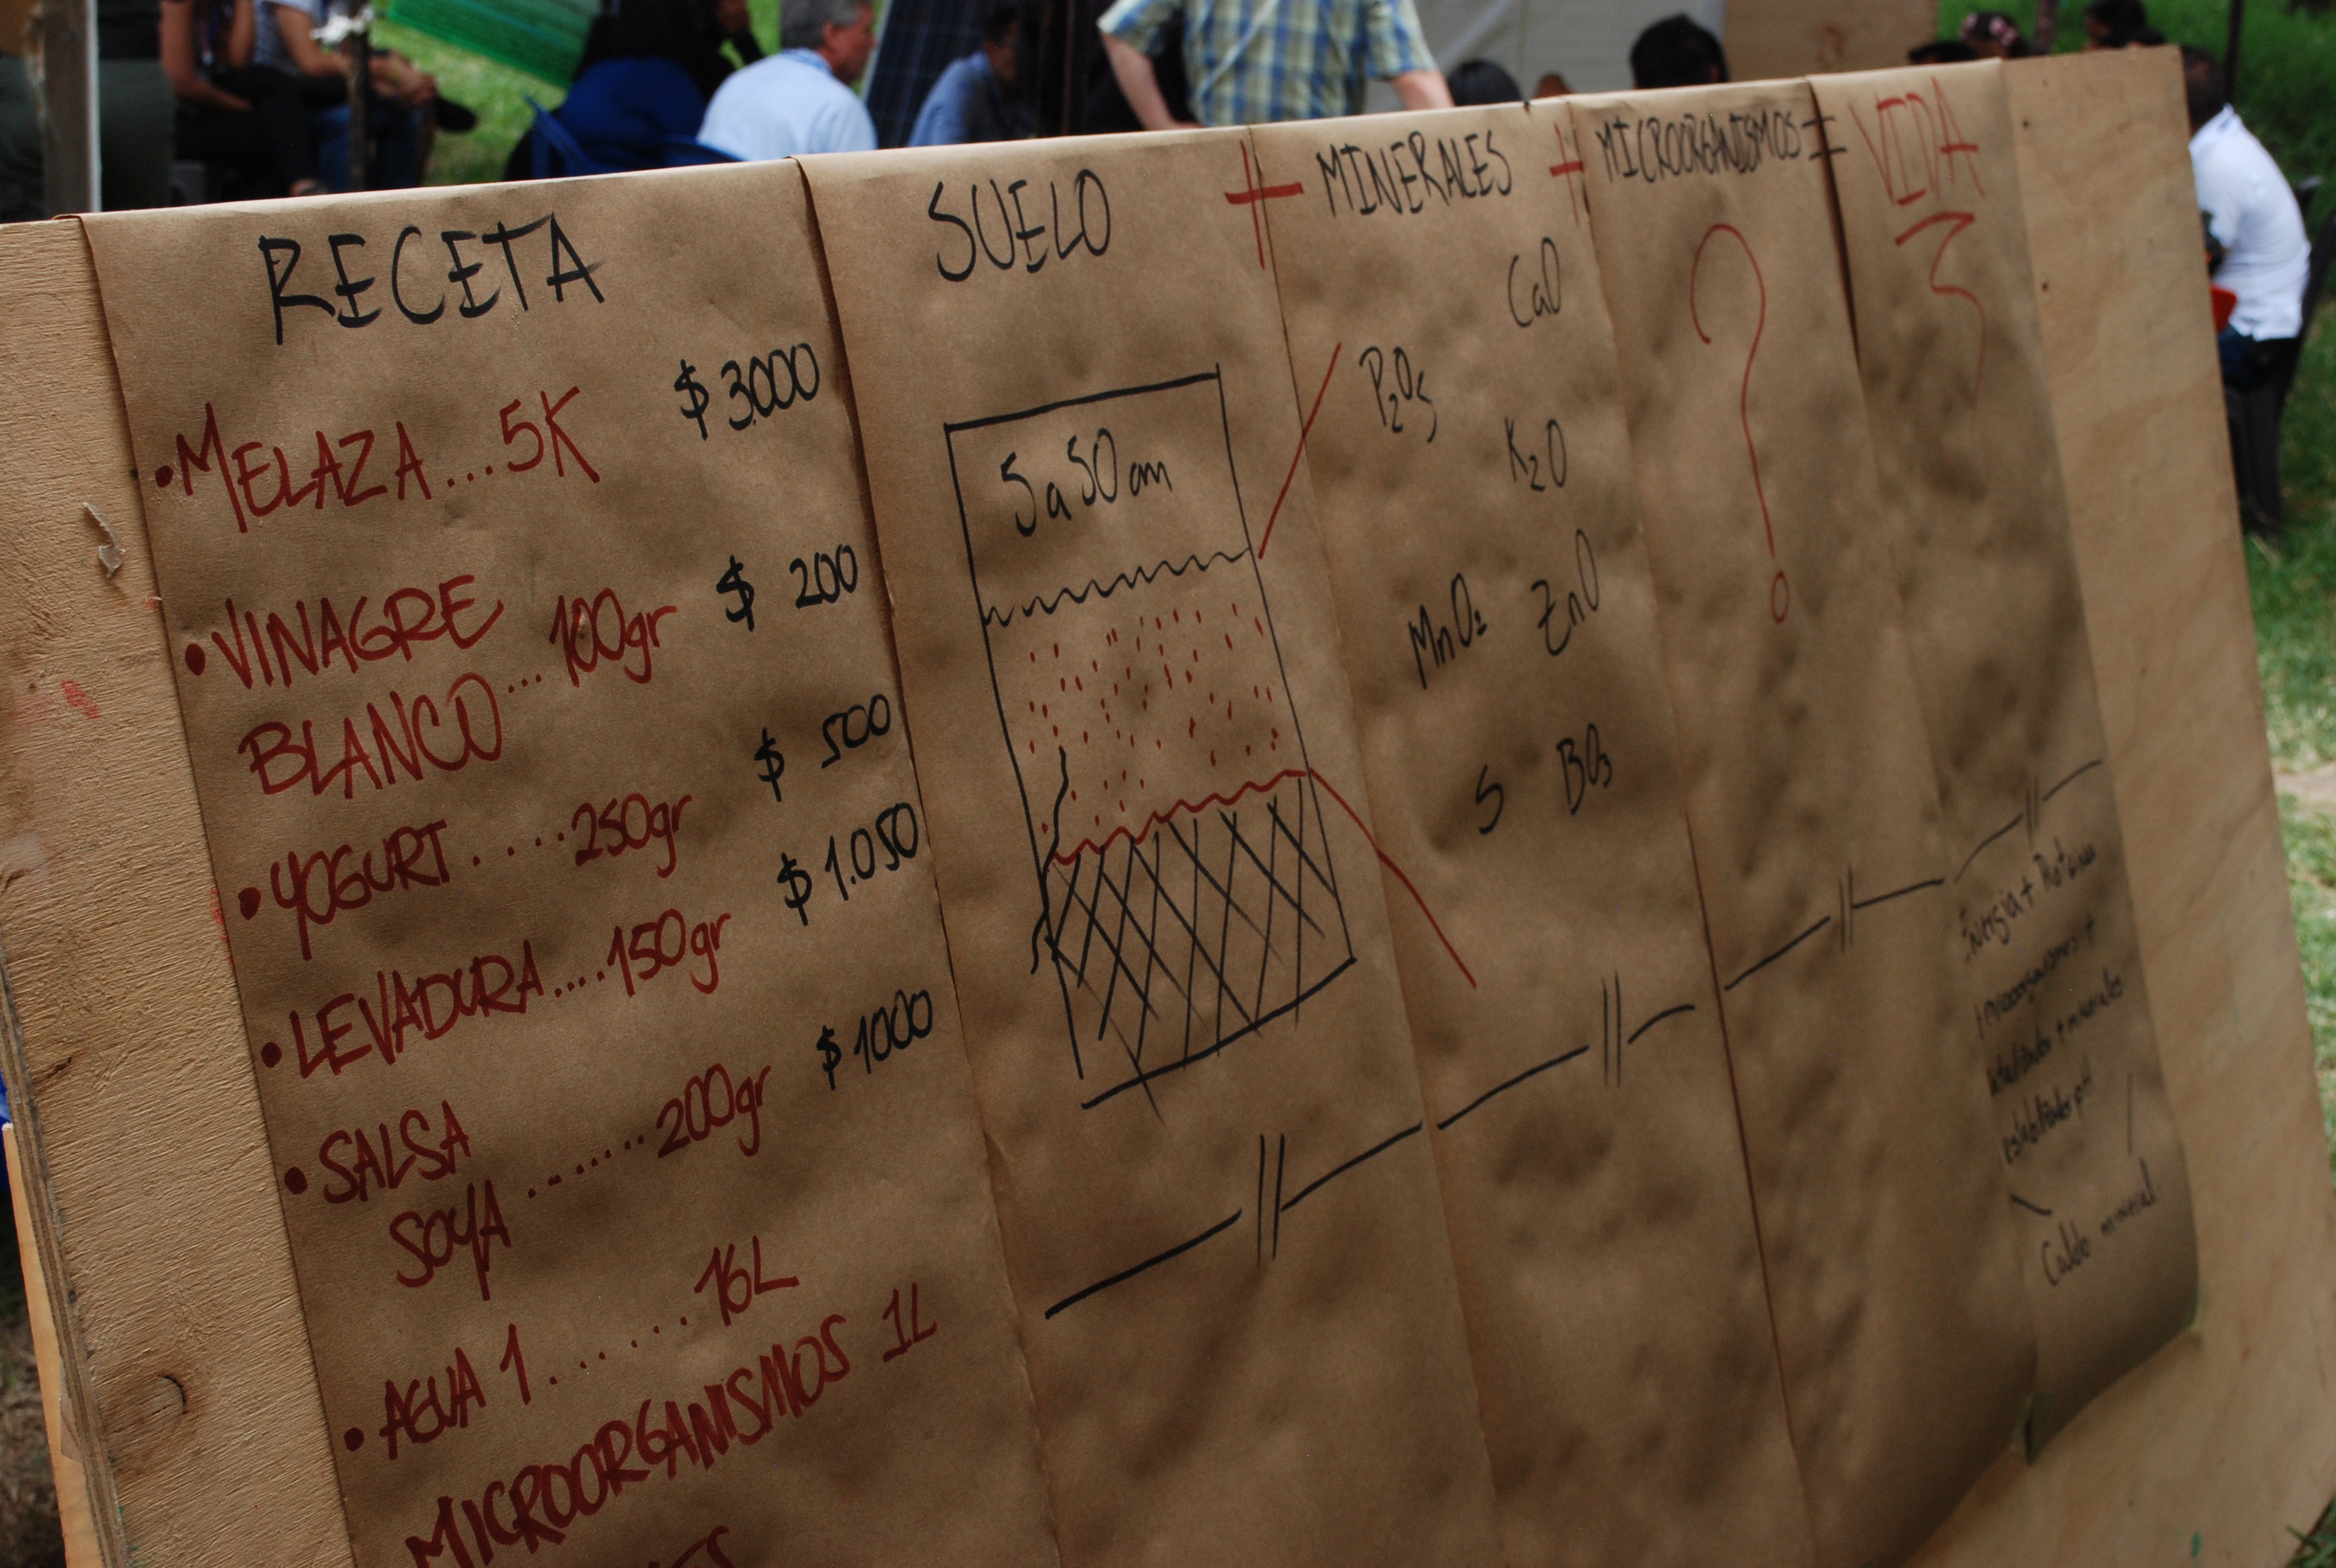 RECETA
• MELAZA...5K $3.000
• VINAGRE
BLANCO...100gr $ 200
• YOGURT....250gr $ 500
• LEVADURA....150gr $1.050
• SALSA
SOYA........200gr $1000
• AGUA 1.......16L
MICROORGANISMOS 1L
SUELO + MINERALES + MICROORGANISMOS = VIDA
5 a 50 cm
CaO
P2O5
K2O
MnO2 ZnO
S BO3
?
Energia + Proteina
microorganismos +
+ minerales
pH
Caldo mineral